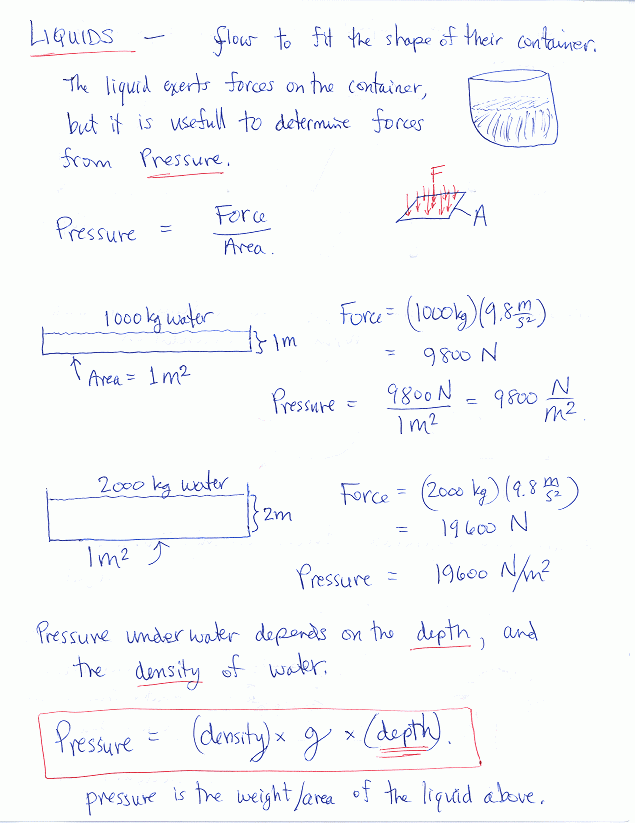 LIQUIDS — flow to fit the shape of their container.
The liquid exerts forces on the container,
but it is usefull to determine forces
from Pressure.
F
A
Pressure = Force / Area.
1000 kg water
1m
Area = 1m²
Force = (1000 kg)(9.8 m/s²)
= 9800 N
Pressure = 9800 N / 1m² = 9800 N/m²
2000 kg water
2m
1m²
Force = (2000 kg)(9.8 m/s²)
= 19600 N
Pressure = 19600 N/m²
Pressure under water depends on the depth, and
the density of water.
Pressure = (density) × g × (depth).
pressure is the weight/area of the liquid above.